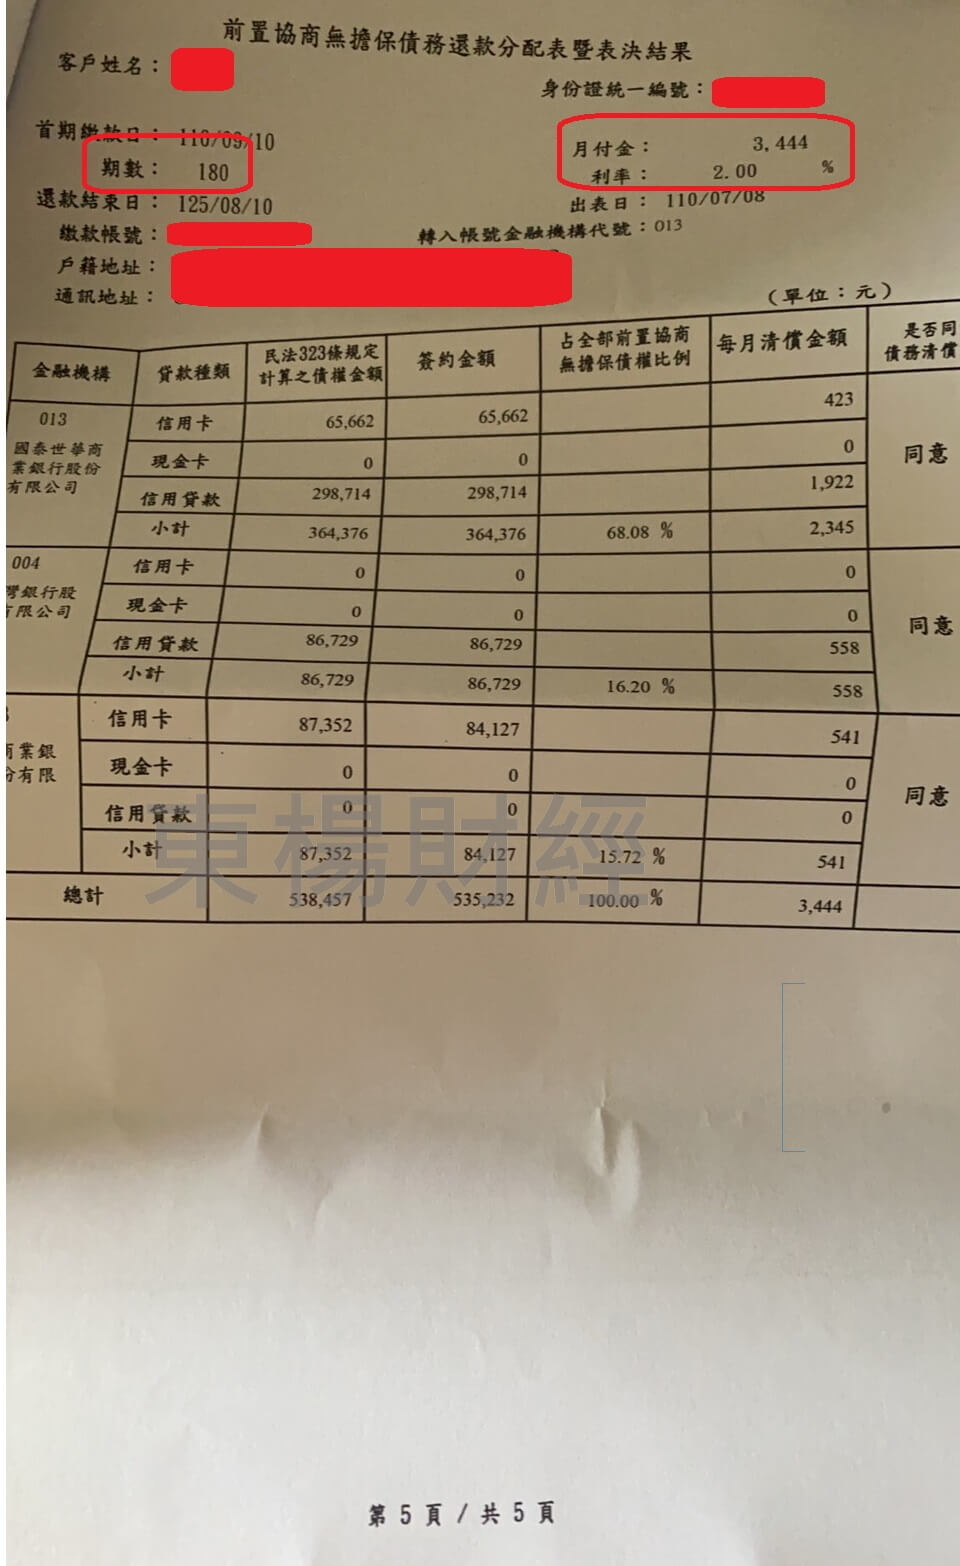 前置協商無擔保債務還款分配表暨表決結果
客戶姓名：
身份證統一編號：
首期繳款日： 110/09/10
月付金： 3,444
期數： 180
利率： 2.00 %
還款結束日： 125/08/10
出表日： 110/07/08
繳款帳號：
轉入帳號金融機構代號：013
戶籍地址：
通訊地址：
（單位：元）
金融機構 貸款種類 民法323條規定計算之債權金額 簽約金額 占全部前置協商無擔保債權比例 每月清償金額 是否同 債務清償
013 國泰世華商業銀行股份有限公司 信用卡 65,662 65,662 423 同意
現金卡 0 0 0
信用貸款 298,714 298,714 1,922
小計 364,376 364,376 68.08 % 2,345
004 灣銀行股 有限公司 信用卡 0 0 0 同意
現金卡 0 0 0
信用貸款 86,729 86,729 558
小計 86,729 86,729 16.20 % 558
商業銀 份有限 信用卡 87,352 84,127 541 同意
現金卡 0 0 0
信用貸款 0 0 0
小計 87,352 84,127 15.72 % 541
總計 538,457 535,232 100.00 % 3,444
東楊財經
第 5 頁 / 共 5 頁